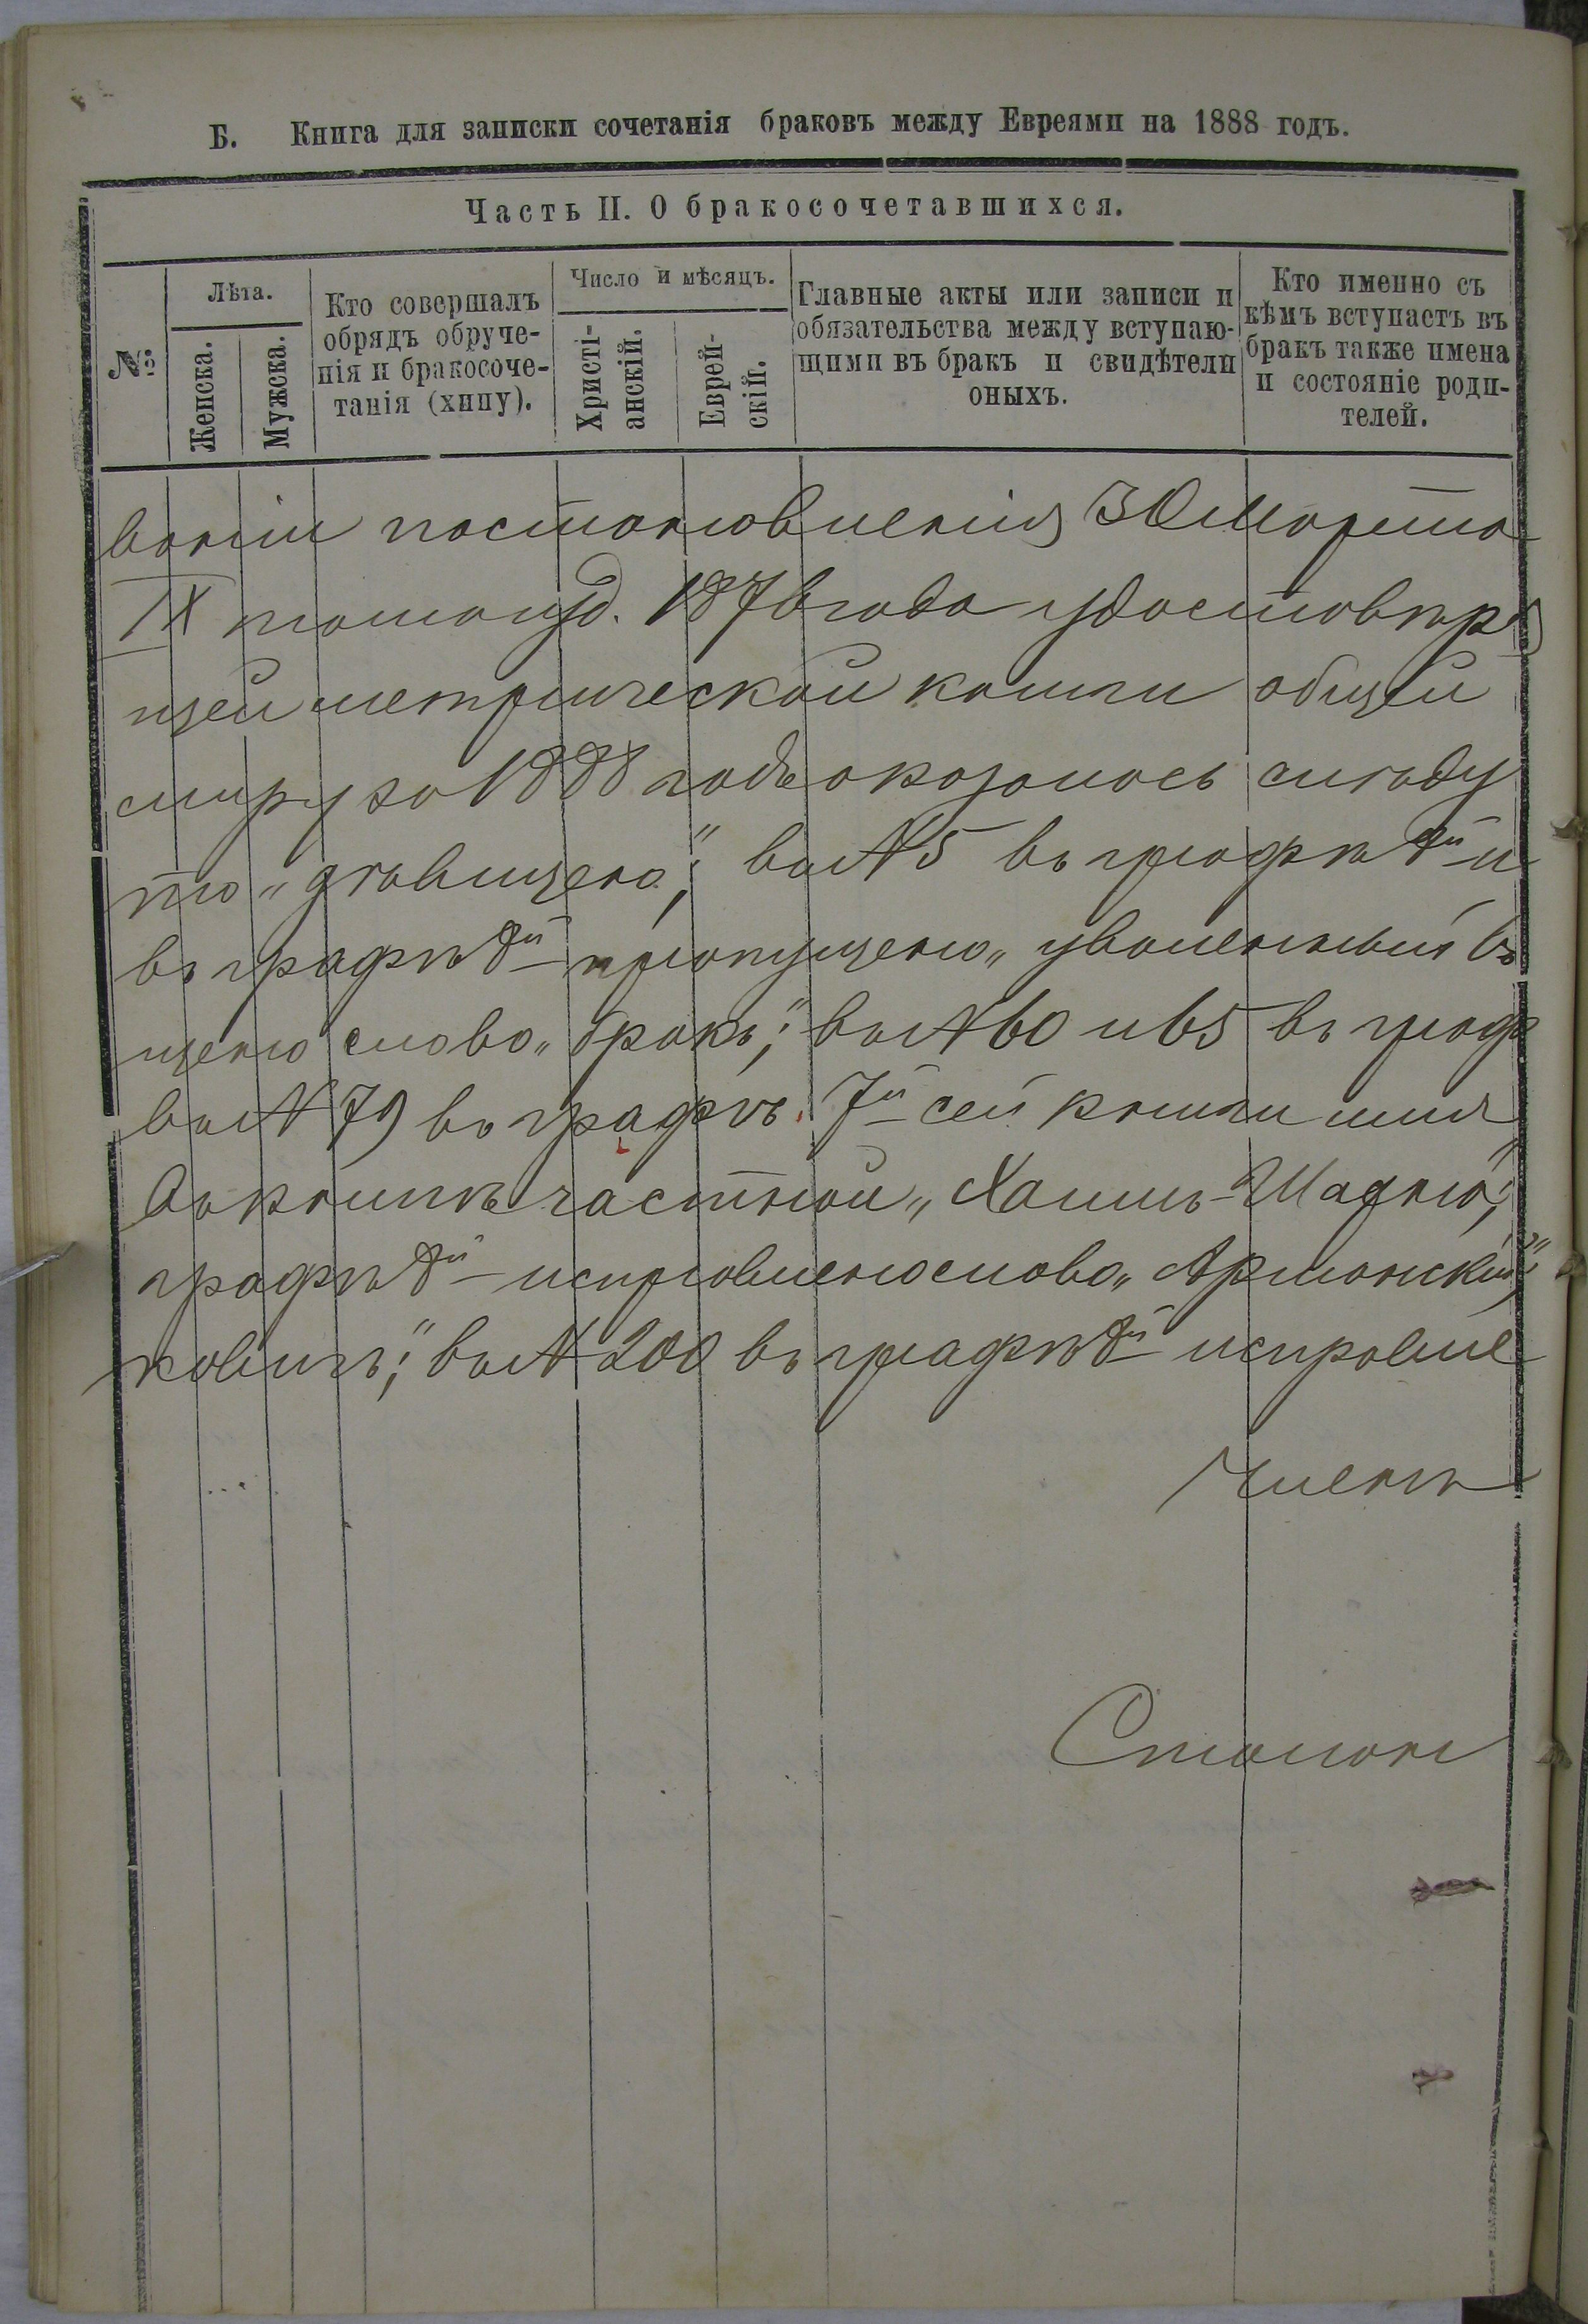 Б. Книга для записки сочетанія браковъ между Евреями на 1888 годъ.
Часть II. О бракосочетавшихся.
№
Лѣта.
Женска.
Мужска.
Кто совершалъ
обрядъ обруче-
нія и бракосоче-
танія (хипу).
Число и мѣсяцъ.
Христі-
анскій.
Еврей-
скій.
Главные акты или записи и
обязательства между вступаю-
щими въ бракъ и свидѣтели
оныхъ.
Кто именно съ
кѣмъ вступаетъ въ
бракъ также имена
и состояніе роди-
телей.
ваніи постановленія 30 Марта
IX тома изд. 1876 года удостовѣря
щей метрической книги общей
за 1888 годъ оказалось
во № 5 въ графѣ 8й и
въ графѣ 8й пропущено „уволенный въ
щено слово „бракъ"; во № 60 и 65 въ граф
во № 79 въ графѣ 7й сей книги имя
въ книгѣ частной „Хаимъ-
графѣ 8й исправлено слово „Армянскій";
ковичъ"; во № 200 въ графѣ 8й исправле
Членъ